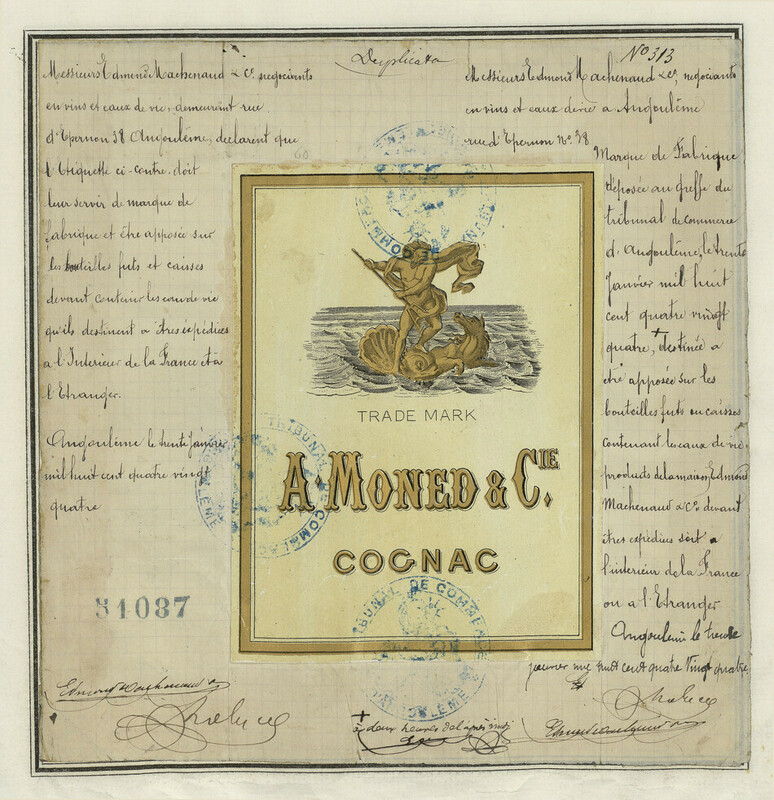 Duplicata
Nº 313
Messieurs Edmond Machenaud & Cº, negociants
en vins et eaux de vie, demeurant rue
d'Epernon 38 Angoulême, déclarent que
l'Etiquette ci-contre, doit
leur servir de marque de
fabrique et être apposée sur
les bouteilles futs et caisses
devant contenir les eaux de vie
qu'ils destinent a être expédiées
a l'Interieur de la France et à
l'Etranger.
Angoulême le trente janvier
mil huit cent quatre vingt
quatre
51087
Messieurs Edmond Machenaud & Cº, negociants
en vins et eaux de vie a Angoulême
rue d'Epernon Nº 38
Marque de Fabrique
déposée au greffe du
tribunal de commerce
d'Angoulême, le trente
Janvier mil huit
cent quatre vingt
quatre, + destinée a
être apposée sur les
bouteilles futs ou caisses
contenant les eaux de vie
produits de la maison Edmond
Machenaud & Cº devant
êtres expédiées soit a
l'interieur de la France
ou a l'Etranger
Angoulême le trente
janvier mil huit cent quatre vingt quatre
TRADE MARK
A. MONED & CIE.
COGNAC
TRIBUNAL DE COMMERCE
ANGOULÊME
Edmond Machenaud &
+ à deux heures de l'après midi
Edmond Machenaud &